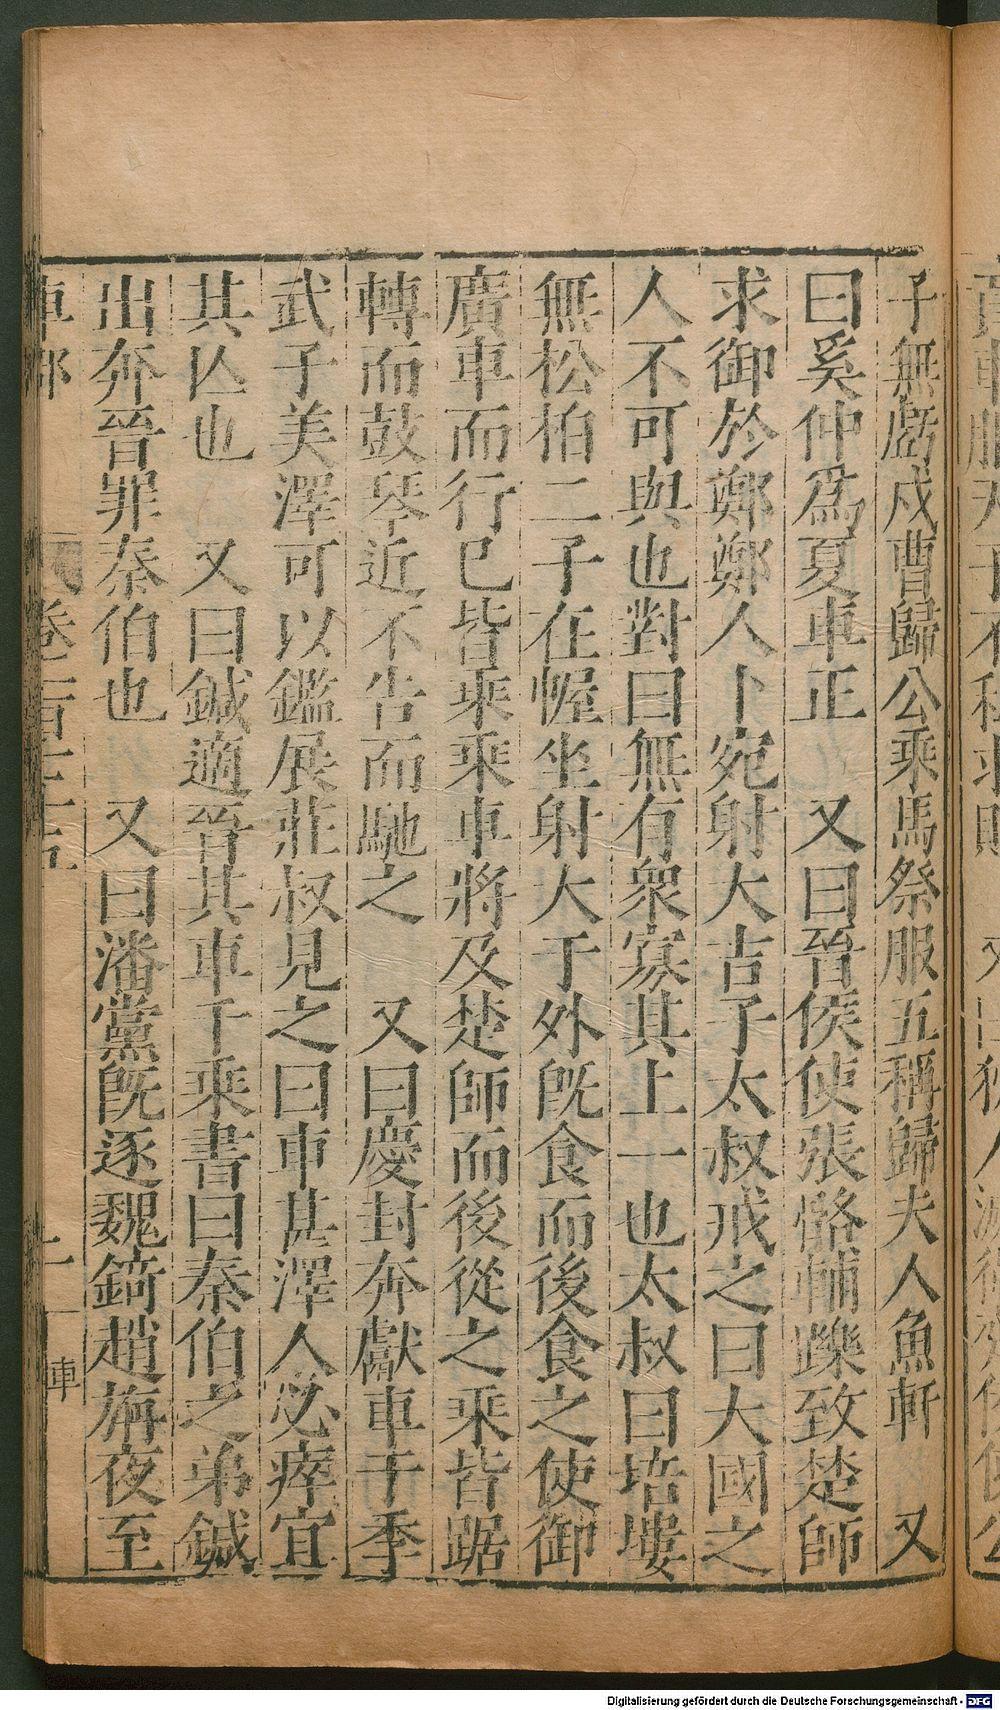 子無虧戍曹歸公乘馬祭服五稱歸夫人魚軒　又
曰奚仲爲夏車正　又曰晉侯使張骼輔躒致楚師
求御於鄭鄭人卜宛射大吉子太叔戒之曰大國之
人不可與也對曰無有衆寡其上一也太叔曰培塿
無松柏二子在幄坐射大于外旣食而後食之使御
廣車而行已皆乘乘車將及楚師而後從之乘皆踞
轉而鼓琴近不告而馳之　又曰慶封奔獻車于季
武子美澤可以鑑展莊叔見之曰車甚澤人必瘁宜
其亾也　又曰鍼適晉其車千乘書曰秦伯之弟鍼
出奔晉罪秦伯也　又曰潘黨旣逐魏錡趙旃夜至
車部　卷一百七十五　二　車
Digitalisierung gefördert durch die Deutsche Forschungsgemeinschaft - DFG